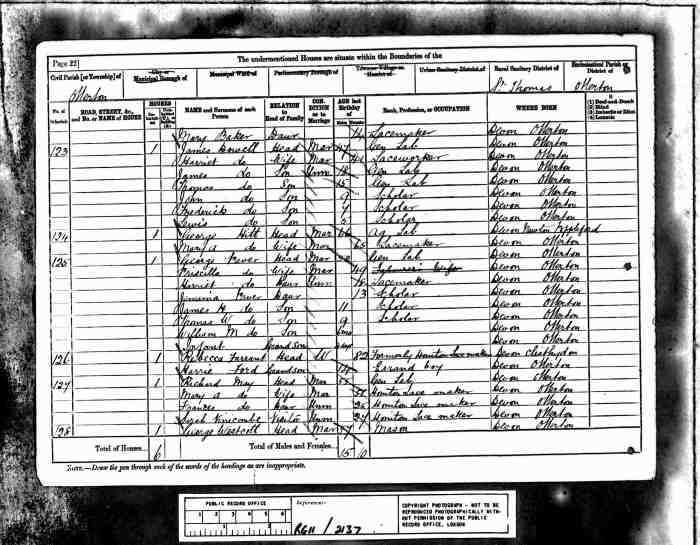 Page 22]
The undermentioned Houses are situate within the Boundaries of the
Civil Parish [or Township] of
City or Municipal Borough of
Municipal Ward of
Parliamentary Borough of
Town or Village or Hamlet of
Urban Sanitary District of
Rural Sanitary District of
Ecclesiastical Parish or District of
Otterton
St. Thomas
Otterton
No. of Schedule
ROAD, STREET, &c., and No. or NAME of HOUSE
HOUSES
NAME and Surname of each Person
RELATION to Head of Family
CONDITION as to Marriage
AGE last Birthday of
Rank, Profession, or OCCUPATION
WHERE BORN
(1) Deaf-and-Dumb
(2) Blind
(3) Imbecile or Idiot
(4) Lunatic
Mary Baker Daur 14 Lacemaker Devon Otterton
123 1 James Head Mar 47 Gen Lab Devon Otterton
Harriet do Wife Mar Laceworker Devon Otterton
James do Son Unm 18 Gen Lab Devon Otterton
Thomas do Son 15 Gen Lab Devon Otterton
John do Son 9 Scholar Devon Otterton
Frederick do Son Scholar Devon Otterton
Lewis do Son 5 Scholar Devon Otterton
124 1 George Hitt Head Mar 66 Ag Lab Devon Newton Poppleford
Mary A do Wife Mar 65 Lacemaker Devon Otterton
125 1 George Head Mar Gen Lab Devon Otterton
Priscilla do Wife Mar 49 Devon Otterton
Harriet do Daur Unm 18 Lacemaker Devon Otterton
Jemima Daur 13 Scholar Devon Otterton
James H do Son 11 Scholar Devon Otterton
Thomas W do Son 9 Scholar Devon Otterton
William M do Son 6mo Devon Otterton
Infant Grandson Devon Otterton
126 1 Rebecca Farrant Head W 82 Formerly Honiton Lace maker Devon Clisthydon
Harrie Ford Grandson 14 Errand boy Devon Otterton
127 1 Richard May Head Mar Gen Lab Devon Otterton
Mary A do Wife Mar Honiton Lace maker Devon Otterton
Frances do Daur Unm 26 Honiton Lace maker Devon Otterton
Sarah Visitor Unm 24 Honiton Lace maker Devon Otterton
128 1 George Westcott Head Mar Mason Devon Otterton
Total of Houses 6
Total of Males and Females 15 10
NOTE.—Draw the pen through such of the words of the headings as are inappropriate.
PUBLIC RECORD OFFICE
1 2 3 4 5 6
1 2
Reference:-
RG11 / 2137
COPYRIGHT PHOTOGRAPH - NOT TO BE
REPRODUCED PHOTOGRAPHICALLY WITH-
OUT PERMISSION OF THE PUBLIC
RECORD OFFICE, LONDON